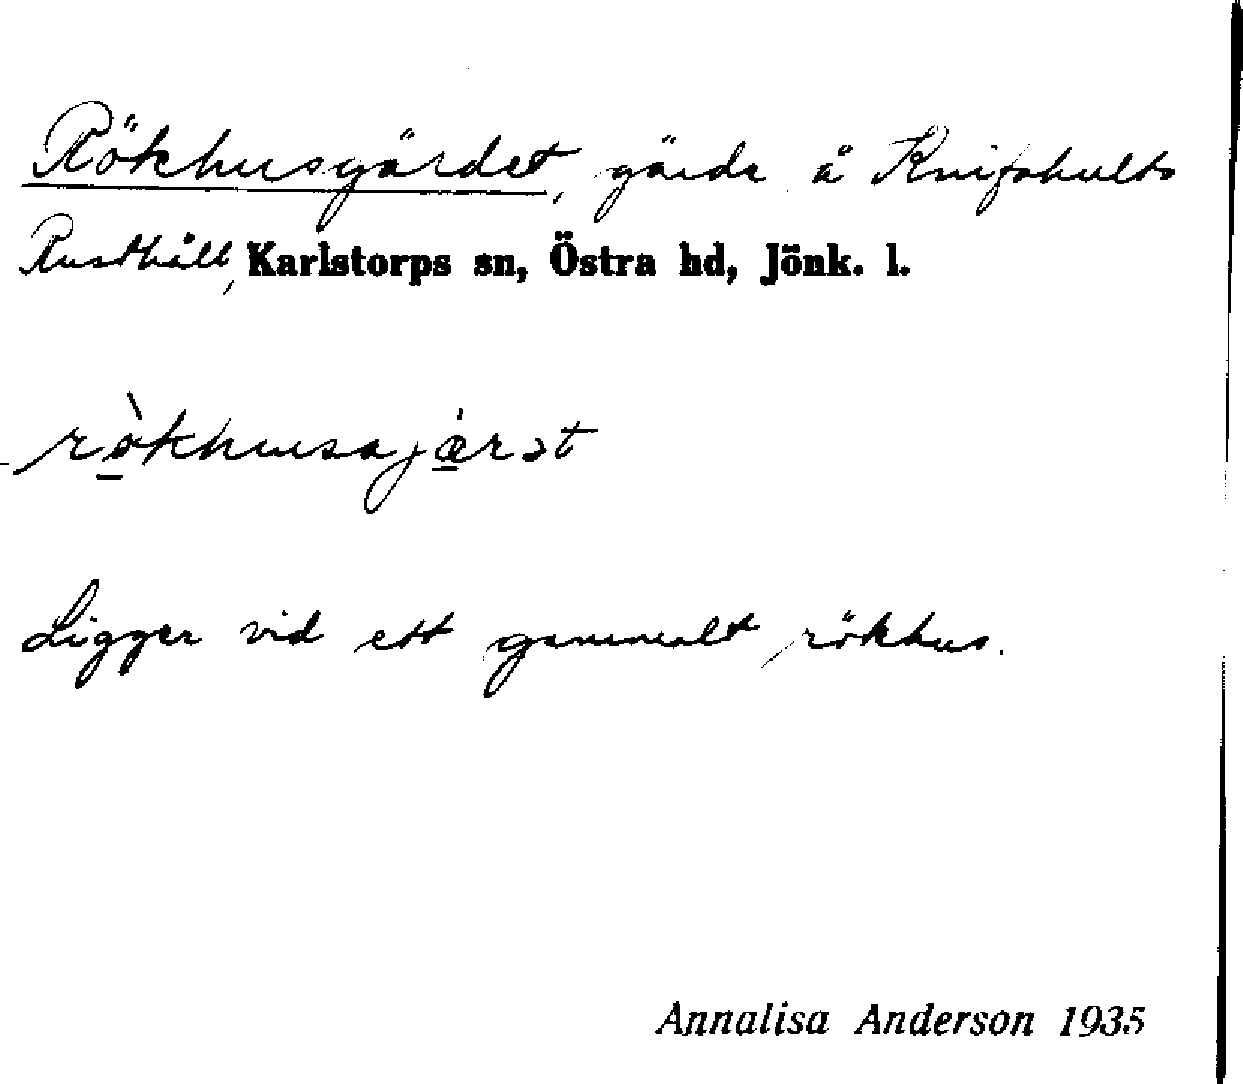 Rökhusgärdet, gärde å Knifshults
Rusthåll, Karlstorps sn, Östra hd, Jönk. l.
rö̀khusajæ̀rət
Ligger vid ett gammalt rökhus.
Annalisa Anderson 1935